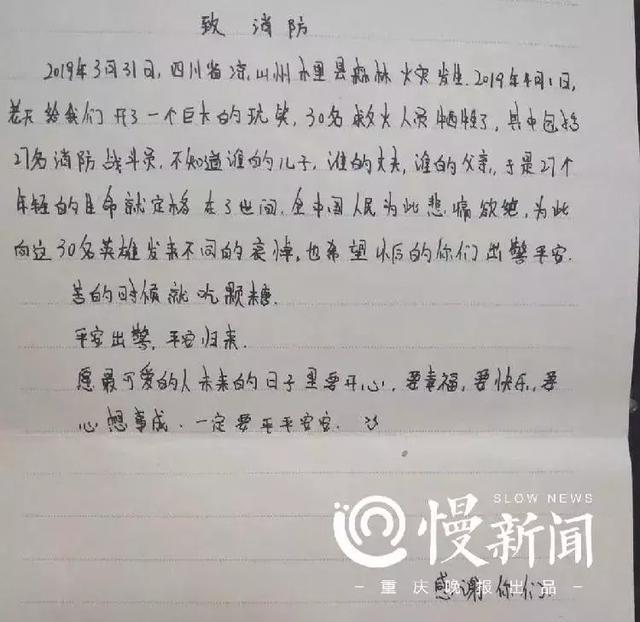 致 消防
2019年3月31日，四川省凉山州木里县森林火灾发生.2019年4月1日，
老天给我们开了一个巨大的玩笑，30名救火人员牺牲了，其中包括
27名消防战斗员，不知道谁的儿子，谁的丈夫，谁的父亲，于是27个
年轻的生命就定格在了世间，全中国人民为此悲痛欲绝，为此
向这30名英雄发来不同的哀悼，也希望以后的你们出警平安.
苦的时候就吃颗糖.
平安出警，平安归来.
愿最可爱的人未来的日子里要开心，要幸福，要快乐，要
心想事成.一定要平平安安.
SLOW NEWS
慢新闻
重庆晚报出品
感谢你们